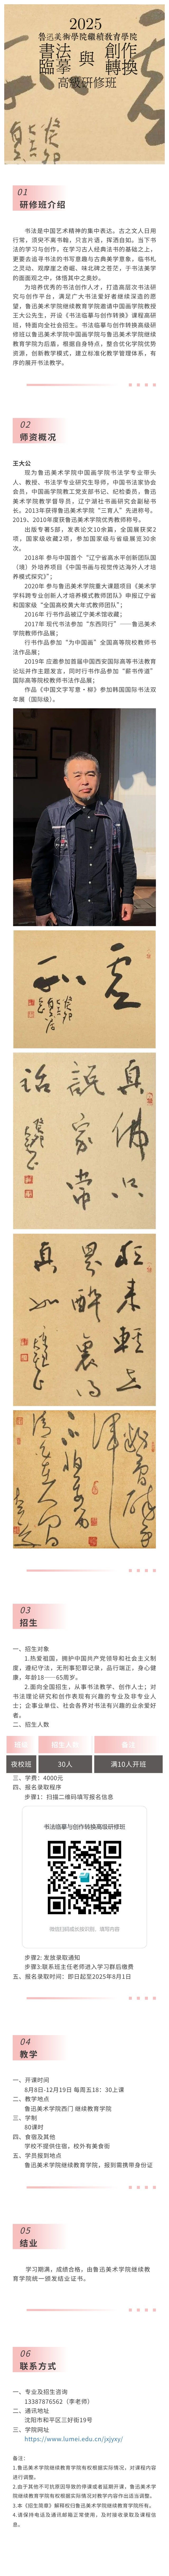 2025
魯迅美術學院繼續教育學院
書法 與 創作
臨摹 轉換
高級研修班
01
研修班介绍
书法是中国艺术精神的集中表达。古之文翰，日用
行常，须臾不离书翰，只言片语，挥洒自如。当下书
法的学习与创作，在学习古人经典法书的基础之上，
更要去追寻法书的书写意趣与古典美学意象，临书札
之灵动，观摩崖之奇崛，味北碑之苍茫，于书法美学
的面面观之中，体悟其中之奥妙。
为培养优秀的书法创作人才，打造高层次书法研
究与创作平台，满足广大书法爱好者继续深造的愿
望，鲁迅美术学院继续教育学院邀请中国画学院教授
王大公先生，开设《书法临摹与创作转换》课程高研
班，特面向全社会招生。书法临摹与创作转换高级研
修班以鲁迅美术学院中国画学院与鲁迅美术学院继续
教育学院为后盾，根据自身特点，整合优化学院优势
资源，创新教学模式，建立标准化教学管理体系，有
序的展开书法教学。
02
师资概况
王大公
现为鲁迅美术学院中国画学院书法学专业带头
人、教授、书法学专业研究生导师，中国书法家协会
会员，中国画学院教工党支部书记、纪检委员，鲁迅
美术学院教学督导员，辽宁湖社书画研究会副秘书
长。2013年获得鲁迅美术学院“三育人”先进称号。
2019、2010年度获鲁迅美术学院优秀教师称号。
出版专著5部，发表论文10余篇，全国展赛获奖2
项，国家级收藏2项，参加国家级与省级展览30余
次。
2018年 参与中国首个“辽宁省高水平创新团队国
（境）外培养项目《中国书画与视觉传达海外人才培
养模式探究》”；
2020年 参与鲁迅美术学院重大课题项目《美术学
学科跨专业创新人才培养模式教师团队》申报辽宁省
和国家级“全国高校黄大年式教师团队”；
2016年 行书作品被辽宁美术馆收藏；
2017年 现代书法参加“东西同行”——鲁迅美术
学院教师作品展；
行书作品参加“为中国画”全国高等院校教师书
法作品展；
2019年 应邀参加首届中国西安国际高等书法教育
论坛并作主题发言，同时行书作品参加“薪书传道”
国际高等院校教师书法作品展；
作品《中国文字写意·柳》参加韩国国际书法双
年展（国际级）。
03
招生
一、招生对象
1.热爱祖国，拥护中国共产党领导和社会主义制
度，遵纪守法，无刑事犯罪记录，品行端正，身心健
康，年龄18——65周岁。
2.面向全国招生，从事书法教学、创作人士；对
书法理论研究和创作表现有兴趣的专业及非专业人
士；企事业单位、社会各界对书法有兴趣的业余爱好
者。
二、招生人数
班级 招生人数 备注
夜校班 30人 满10人开班
三、学费：4000元
四、报名录取程序
步骤1：扫描二维码填写报名信息
书法临摹与创作转换高级研修班
微信扫码或长按识别，填写内容
步骤2: 发放录取通知
步骤3:联系班主任老师进入学习群后缴费
五、报名录取时间：即日起至2025年8月1日
04
教学
一、开课时间
8月8日-12月19日 每周五18：30上课
二、教学地点
鲁迅美术学院西门 继续教育学院
三、学制
80课时
四、食宿及其他
学校不提供住宿，校外有美食街
五、学员报到地点
鲁迅美术学院继续教育学院，报到需携带身份证
05
结业
学习期满，成绩合格，由鲁迅美术学院继续教
育学院统一颁发结业证书。
06
联系方式
一、专业及招生咨询
13387876562（李老师）
二、通讯地址
沈阳市和平区三好街19号
三、学院网址
https://www.lumei.edu.cn/jxjyxy/
备注：
1.鲁迅美术学院继续教育学院有权根据实际情况，对课程内容
进行调整。
2.由于其他不可抗原因导致的停课或者延期开课，鲁迅美术学
院继续教育学院有权根据实际情况对教学内容作出适当调整。
3.本《招生简章》解释权归鲁迅美术学院继续教育学院所有。
4.请保持电话及通讯邮箱正常使用，及时接收录取及课程信
息。